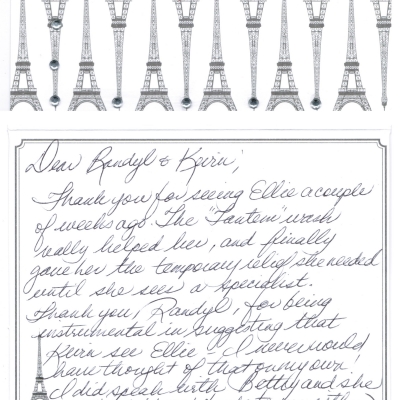 Dear Randyl & Kevin,
Thank you for seeing Ellie a couple
of weeks ago. The "Lantern" wash
really helped her, and finally
gave her the temporary relief she needed
until she sees a specialist.
Thank you, Randyl, for being
instrumental in suggesting that
Kevin see Ellie - I never would
have thought of that on my own!
I did speak with Betty and she